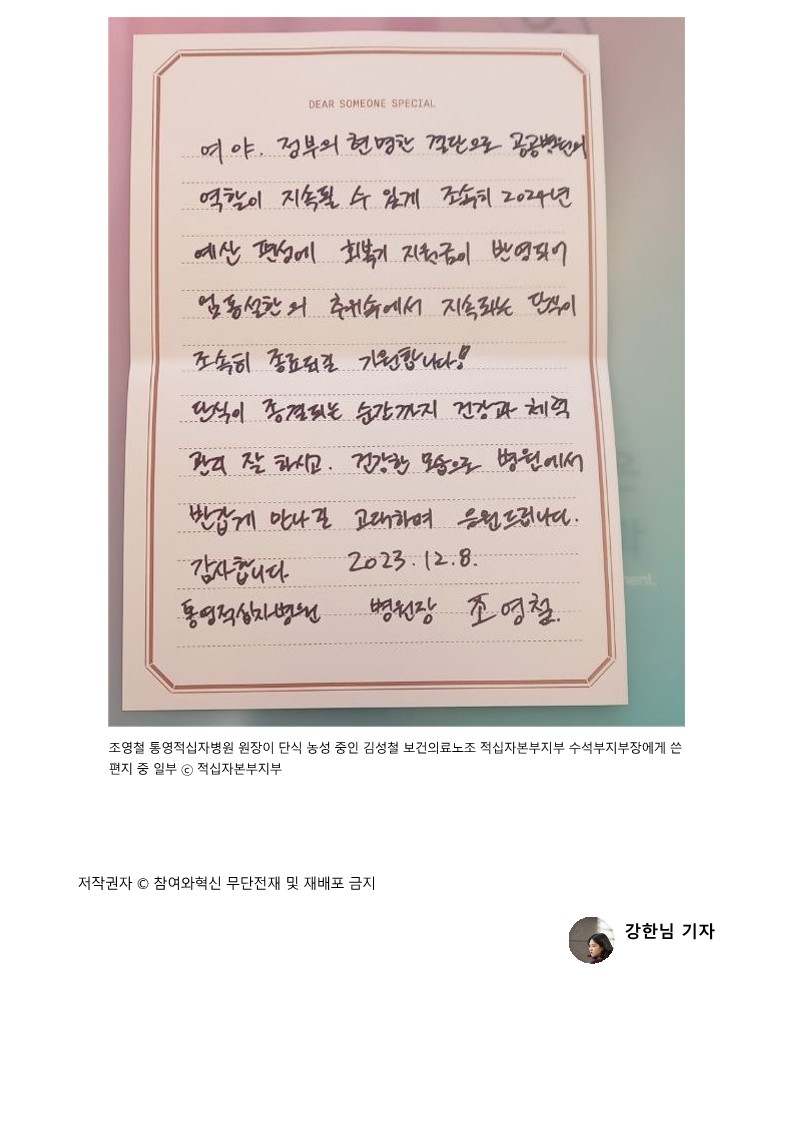 DEAR SOMEONE SPECIAL
여야. 정부의 현명한 결단으로 공공병원의
역할이 지속될 수 있게 조속히 2024년
예산 편성에 회복기 지원금이 반영되어
엄동설한의 추위속에서 지속되는 단식이
조속히 종료되길 기원합니다!
단식이 종결되는 순간까지 건강과 체력
관리 잘 하시고. 건강한 모습으로 병원에서
반갑게 만나길 고대하며 응원드립니다.
감사합니다. 2023. 12. 8.
통영적십자병원 병원장 조영철.
조영철 통영적십자병원 원장이 단식 농성 중인 김성철 보건의료노조 적십자본부지부 수석부지부장에게 쓴
편지 중 일부 ⓒ 적십자본부지부
저작권자 © 참여와혁신 무단전재 및 재배포 금지
강한님 기자